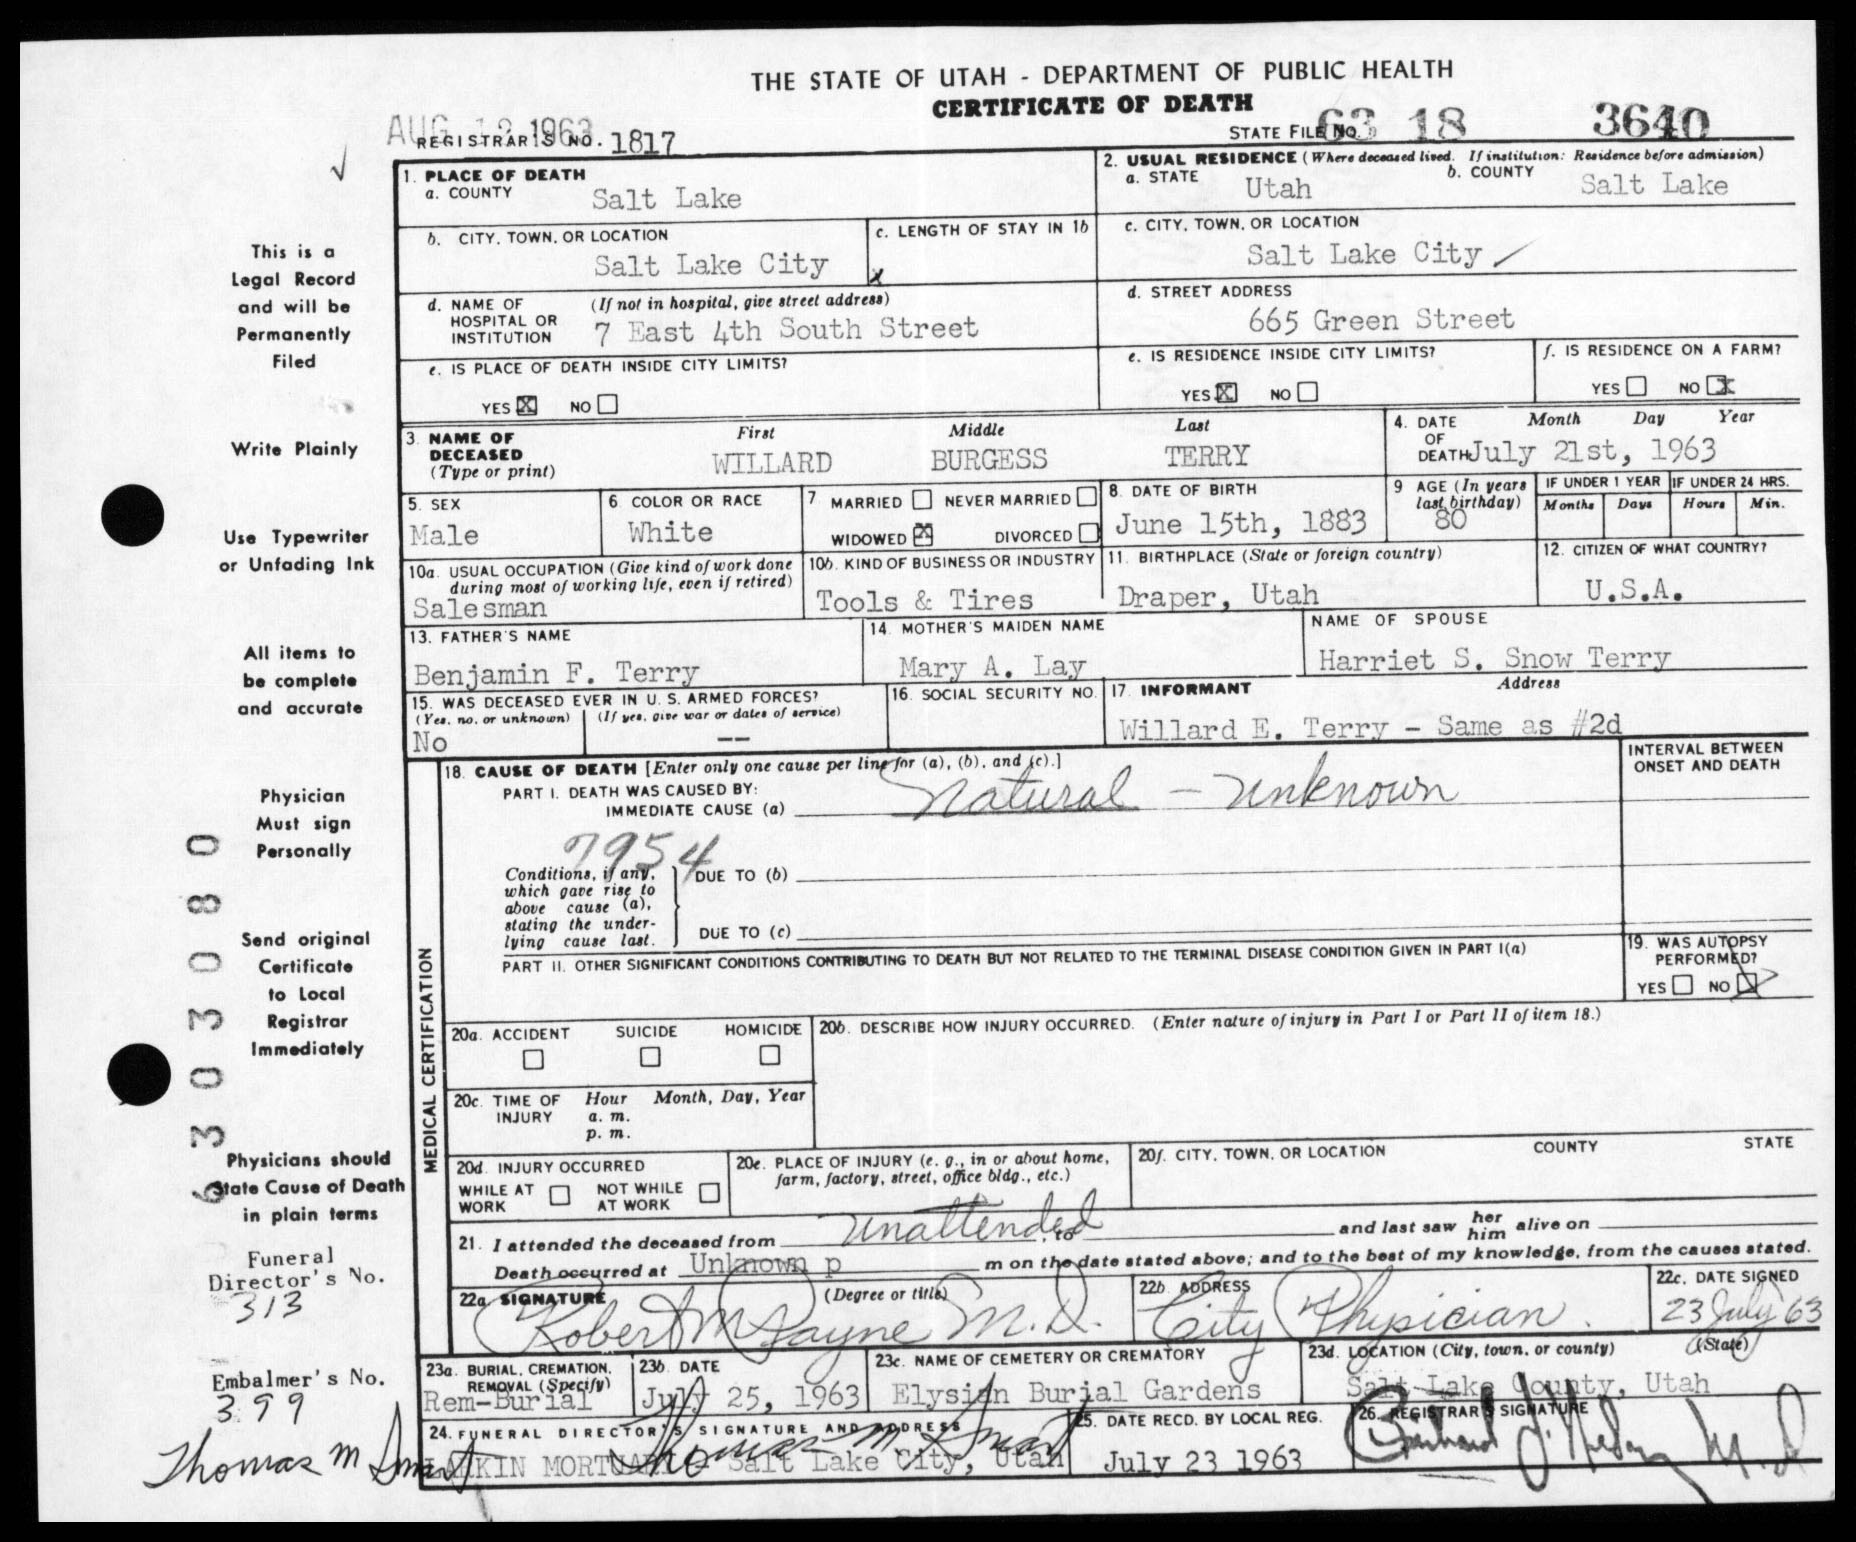 THE STATE OF UTAH - DEPARTMENT OF PUBLIC HEALTH
CERTIFICATE OF DEATH
AUG 12 1963
REGISTRAR'S NO. 1817
STATE FILE NO. 63 18 3640
1. PLACE OF DEATH
a. COUNTY Salt Lake
2. USUAL RESIDENCE (Where deceased lived. If institution: Residence before admission)
a. STATE Utah b. COUNTY Salt Lake
b. CITY, TOWN, OR LOCATION Salt Lake City
c. LENGTH OF STAY IN 1b
x
c. CITY, TOWN, OR LOCATION
Salt Lake City
d. NAME OF HOSPITAL OR INSTITUTION (If not in hospital, give street address)
7 East 4th South Street
d. STREET ADDRESS
665 Green Street
e. IS PLACE OF DEATH INSIDE CITY LIMITS?
YES X NO
e. IS RESIDENCE INSIDE CITY LIMITS?
YES X NO
f. IS RESIDENCE ON A FARM?
YES NO X
3. NAME OF DECEASED (Type or print)
First Middle Last
WILLARD BURGESS TERRY
4. DATE OF DEATH Month Day Year
July 21st, 1963
5. SEX
Male
6. COLOR OR RACE
White
7 MARRIED NEVER MARRIED
WIDOWED X DIVORCED
8. DATE OF BIRTH
June 15th, 1883
9 AGE (In years last birthday)
80
IF UNDER 1 YEAR IF UNDER 24 HRS.
Months Days Hours Min.
10a. USUAL OCCUPATION (Give kind of work done during most of working life, even if retired)
Salesman
10b. KIND OF BUSINESS OR INDUSTRY
Tools & Tires
11. BIRTHPLACE (State or foreign country)
Draper, Utah
12. CITIZEN OF WHAT COUNTRY?
U.S.A.
13. FATHER'S NAME
Benjamin F. Terry
14. MOTHER'S MAIDEN NAME
Mary A. Lay
NAME OF SPOUSE
Harriet S. Snow Terry
15. WAS DECEASED EVER IN U. S. ARMED FORCES?
(Yes, no, or unknown) (If yes, give war or dates of service)
No --
16. SOCIAL SECURITY NO.
17. INFORMANT Address
Willard E. Terry - Same as #2d
MEDICAL CERTIFICATION
18. CAUSE OF DEATH [Enter only one cause per line for (a), (b), and (c).]
INTERVAL BETWEEN ONSET AND DEATH
PART I. DEATH WAS CAUSED BY:
IMMEDIATE CAUSE (a) Natural - unknown
7954
Conditions, if any, which gave rise to above cause (a), stating the underlying cause last.
DUE TO (b)
DUE TO (c)
PART II. OTHER SIGNIFICANT CONDITIONS CONTRIBUTING TO DEATH BUT NOT RELATED TO THE TERMINAL DISEASE CONDITION GIVEN IN PART I(a)
19. WAS AUTOPSY PERFORMED?
YES NO X
20a. ACCIDENT SUICIDE HOMICIDE
20b. DESCRIBE HOW INJURY OCCURRED. (Enter nature of injury in Part I or Part II of item 18.)
20c. TIME OF INJURY Hour Month, Day, Year
a. m.
p. m.
20d. INJURY OCCURRED
WHILE AT WORK NOT WHILE AT WORK
20e. PLACE OF INJURY (e. g., in or about home, farm, factory, street, office bldg., etc.)
20f. CITY, TOWN, OR LOCATION COUNTY STATE
21. I attended the deceased from unattended, to and last saw her him alive on
Death occurred at Unknown p m on the date stated above; and to the best of my knowledge, from the causes stated.
22a. SIGNATURE (Degree or title)
Robert M Payne M.D.
22b. ADDRESS
City Physician.
22c. DATE SIGNED
23 July 63
23a. BURIAL, CREMATION, REMOVAL (Specify)
Rem-Burial
23b. DATE
July 25, 1963
23c. NAME OF CEMETERY OR CREMATORY
Elysian Burial Gardens
23d. LOCATION (City, town, or county) (State)
Salt Lake County, Utah
24. FUNERAL DIRECTOR'S SIGNATURE AND ADDRESS
Thomas M Smart
LARKIN MORTUARY - Salt Lake City, Utah
25. DATE RECD. BY LOCAL REG.
July 23 1963
26. REGISTRAR'S SIGNATURE
This is a
Legal Record
and will be
Permanently
Filed
Write Plainly
Use Typewriter
or Unfading Ink
All items to
be complete
and accurate
Physician
Must sign
Personally
Send original
Certificate
to Local
Registrar
Immediately
Physicians should
State Cause of Death
in plain terms
6303080
Funeral
Director's No.
313
Embalmer's No.
399
Thomas M Smart